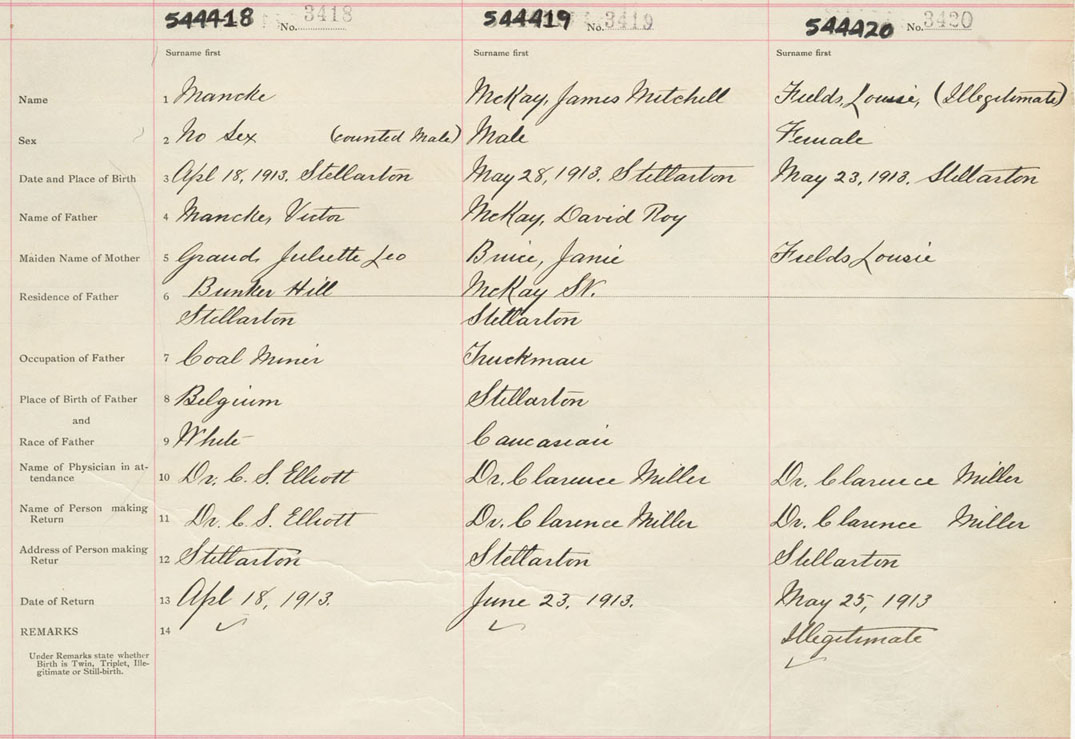 544418 No. 3418 544419 No. 3419 544420 No. 3420
Surname first Surname first Surname first
Name 1 Mancke McKay, James Mitchell Fields, Lousie, (Illegitimate)
Sex 2 No Sex (counted Male) Male Female
Date and Place of Birth 3 Apl 18, 1913. Stellarton May 28, 1913. Stellarton May 23, 1913. Stellarton
Name of Father 4 Mancke, Victor McKay, David Roy
Maiden Name of Mother 5 Juliette Leo Bruce, Janie Fields, Lousie
Residence of Father 6 Bunker Hill McKay St.
Stellarton Stellarton
Occupation of Father 7 Coal Miner Truckman
Place of Birth of Father 8 Belgium Stellarton
and
Race of Father 9 White Caucasian
Name of Physician in at-
tendance 10 Dr. C. S. Elliott Dr. Clarence Miller Dr. Clarence Miller
Name of Person making
Return 11 Dr. C. S. Elliott Dr. Clarence Miller Dr. Clarence Miller
Address of Person making
Retur 12 Stellarton Stellarton Stellarton
Date of Return 13 Apl 18, 1913. June 23, 1913. May 25, 1913
REMARKS 14 Illegitimate
Under Remarks state whether
Birth is Twin, Triplet, Ille-
gitimate or Still-birth.